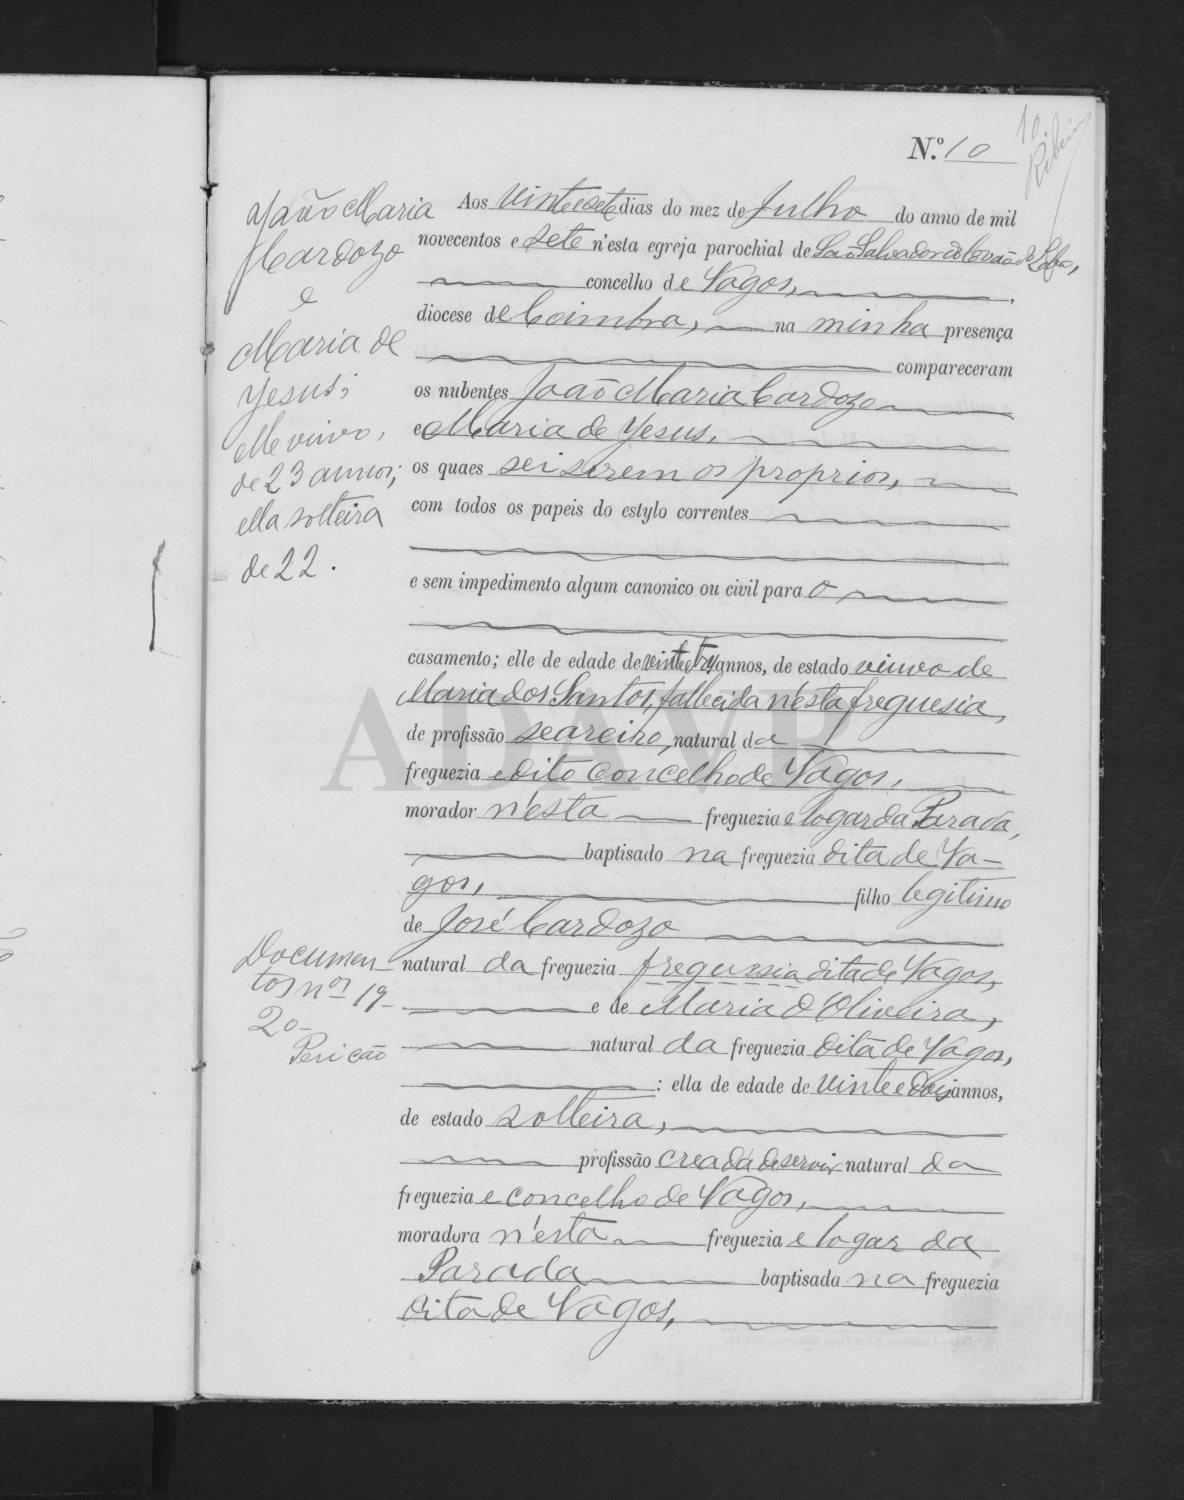 N.º 10
10
Ribeiro
João Maria
Cardozo
e
Maria de
Jesus;
elle viuvo,
de 23 annos;
ella solteira
de 22.
Aos vinte e sete dias do mez de Julho do anno de mil
novecentos e sete n'esta egreja parochial de São Salvador do Covão do Lobo,
concelho de Vagos,
diocese de Coimbra, na minha presença
compareceram
os nubentes João Maria Cardozo
e Maria de Jesus,
os quaes sei serem os proprios,
com todos os papeis do estylo correntes
e sem impedimento algum canonico ou civil para o
casamento; elle de edade de vinte e trez annos, de estado viuvo de
Maria dos Santos, fallecida n'esta freguesia,
de profissão seareiro, natural da
freguezia e dito concelho de Vagos,
morador n'esta freguezia e logar da Parada,
baptisado na freguezia dita de Va-
gos, filho legitimo
de José Cardozo
natural da freguezia freguesia dita de Vagos,
e de Maria d'Oliveira,
natural da freguezia dita de Vagos,
: ella de edade de vinte e dois annos,
de estado solteira,
profissão creada de servir, natural da
freguezia e concelho de Vagos,
moradora n'esta freguezia e logar da
Parada baptisada na freguezia
dita de Vagos,
Documen-
tos nos 19-
20-
ADAVR